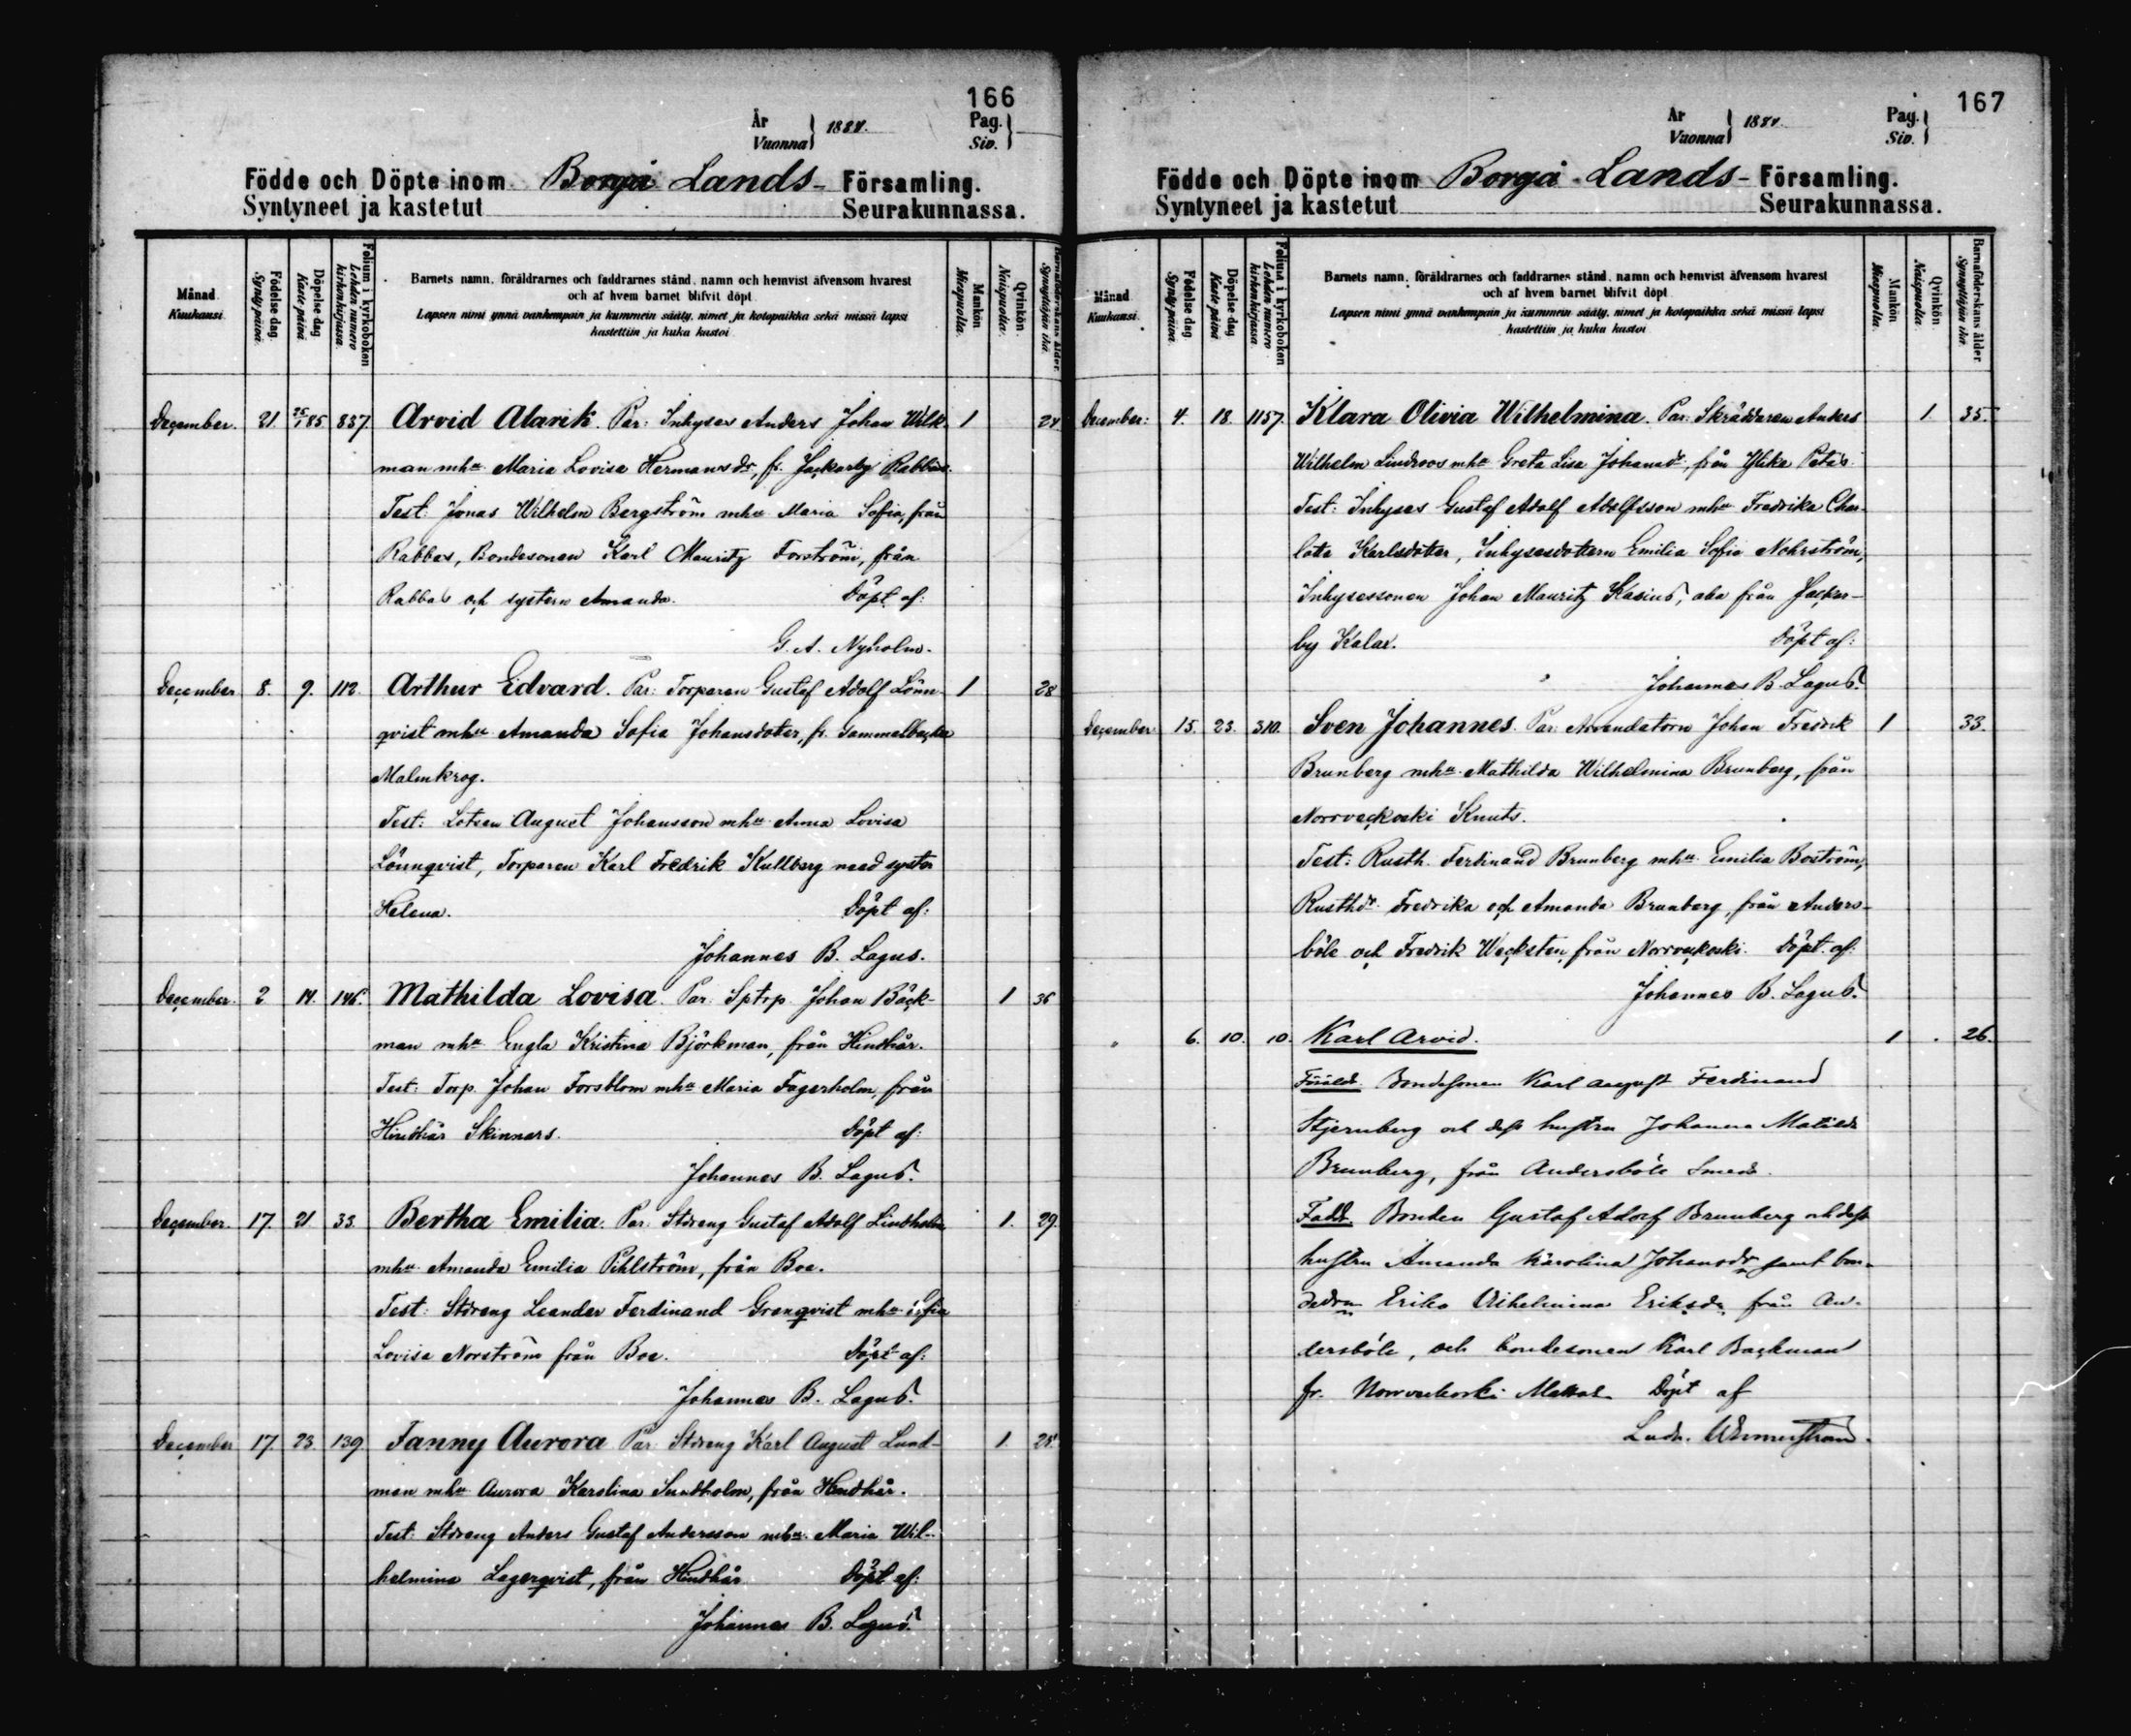 166
År
Vuonna } 1884.
Pag.
Siv. }
Födde och Döpte inom Borgå Lands- Församling.
Syntyneet ja kastetut Seurakunnassa.
Månad
Kuukausi.
Födelse dag
Syntypäivä.
Döpelse dag
Kaste päivä
Folium i kyrkoboken
Lehden numero kirkonkirjassa.
Barnets namn, föräldrarnes och faddrarnes stånd, namn och hemvist äfvensom hvarest
och af hvem barnet blifvit döpt
Lapsen nimi ynnä vanhempain ja kummein sääty, nimet ja kotopaikka sekä missä lapsi
kastettiin ja kuka kastoi
Mankön
Miespuolta.
Qvinkön
Naispuolta.
Barnaföderskans ålder.
Synnyttäjän ikä.
December. 21. 25/1 85 837 Arvid Alarik. Par: Inhyses Anders Johan Wilk- 1
man mhu Maria Lovisa Hermansdr, fr. Jackarby Rabbas.
Test: Jonas Wilhelm Bergström mhu Maria Sofia, från
Rabbas, Bondesonen Karl Mauritz Forström, från
Rabbas och systern Amanda. Döpt af:
G. A. Nyholm.
December 8. 9. 112. Arthur Edvard. Par: Torparen Gustaf Adolf Lönn- 1 28
qvist mhu Amanda Sofia Johansdotter, fr. Gammelbacka
Malmkrog.
Test: Lotsen August Johansson mhu Anna Lovisa
Lönnqvist, Torparen Karl Fredrik Kullberg med syster
Helena. Döpt af:
Johannes B. Lagus.
December. 2 14. 146. Mathilda Lovisa. Par: Sptrp. Johan Bäck- 1 36
man mhu Engla Kristina Björkman, från Hindhår.
Test: Torp. Johan Forsblom mhu Maria Fagerholm, från
Hindhår Skinnars. Döpt af:
Johannes B. Lagus.
December. 17. 21. 33. Bertha Emilia. Par: Stdreng Gustaf Adolf Lindholm 1. 29.
mhu Amanda Emilia Pihlström, från Boe.
Test: Stdreng Leander Ferdinand Granqvist mhu Sofia
Lovisa Norström från Boe. Döpt af:
Johannes B. Lagus.
December 17. 23. 139 Fanny Aurora Par: Stdreng Karl August Lund- 1. 25
man mhu Aurora Karolina Sundholm, från Hindhår.
Test: Stdreng Anders Gustaf Andersson mhu Maria Wil-
helmina Lagerqvist, från Hindhår Döpt af:
Johannes B. Lagus.
167
År
Vuonna } 1884.
Pag.
Siv. }
Födde och Döpte inom Borgå Lands- Församling.
Syntyneet ja kastetut Seurakunnassa.
Månad
Kuukausi.
Födelse dag
Syntypäivä.
Döpelse dag
Kaste päivä
Folium i kyrkoboken
Lehden numero kirkonkirjassa.
Barnets namn, föräldrarnes och faddrarnes stånd, namn och hemvist äfvensom hvarest
och af hvem barnet blifvit döpt
Lapsen nimi ynnä vanhempain ja kummein sääty, nimet ja kotopaikka sekä missä lapsi
kastettiin ja kuka kastoi
Mankön
Miespuolta.
Qvinkön
Naispuolta.
Barnaföderskans ålder
Synnyttäjän ikä.
December: 4. 18. 1157. Klara Olivia Wilhelmina. Par: Skräddaren Anders 1. 35.
Wilhelm Lindroos mhu Greta Lisa Johansdr, från Ylike Petas.
Test: Inhyses Gustaf Adolf Adolfsson mhu Fredrika Char-
lota Karlsdotter, Inhysesdottern Emilia Sofia Nohrström,
Inhysessonen Johan Mauritz Kasius, alla från Jackar-
by Kalax. Döpt af:
Johannes B. Lagus.
December 15. 23. 310. Sven Johannes. Par: Arrendatorn Johan Fredrik 1 33.
Brunberg mhu Mathilda Wilhelmina Brunberg, från
Norrveckoski Knuts.
Test: Rusth. Ferdinand Brunberg mhu Emilia Boström,
Rusthdr. Fredrika och Amanda Brunberg, från Anders-
böle och Fredrik Weckstén, från Norrveckoski. Döpt af:
Johannes B. Lagus.
" 6. 10. 10. Karl Arvid. 1 26.
Föräldr. Bondesonen Karl August Ferdinand
Stjernberg och dess hustru Johanna Matilda
Brunberg, från Andersböle Smeds.
Fadd. Bonden Gustaf Adolf Brunberg och dess
hustru Amanda Karolina Johansdr samt bon-
dedrn Erika Vilhelmina Eriksdr från An-
dersböle, och bondesonen Karl Backman
fr. Norrveckoski Döpt af